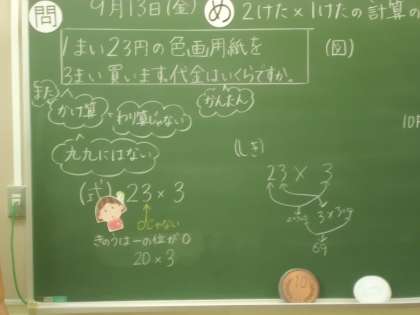 問 9月13日(金) め 2けた×1けたの計算の
1まい23円の色画用紙を
3まい買います。代金はいくらですか。
(図)
また
かけ算
わり算じゃない
かんたん
九九にはない
(しき)
23 × 3
(式) 23 × 3
0じゃない
3×3=9
きのうは一の位が0
20×3
69
10